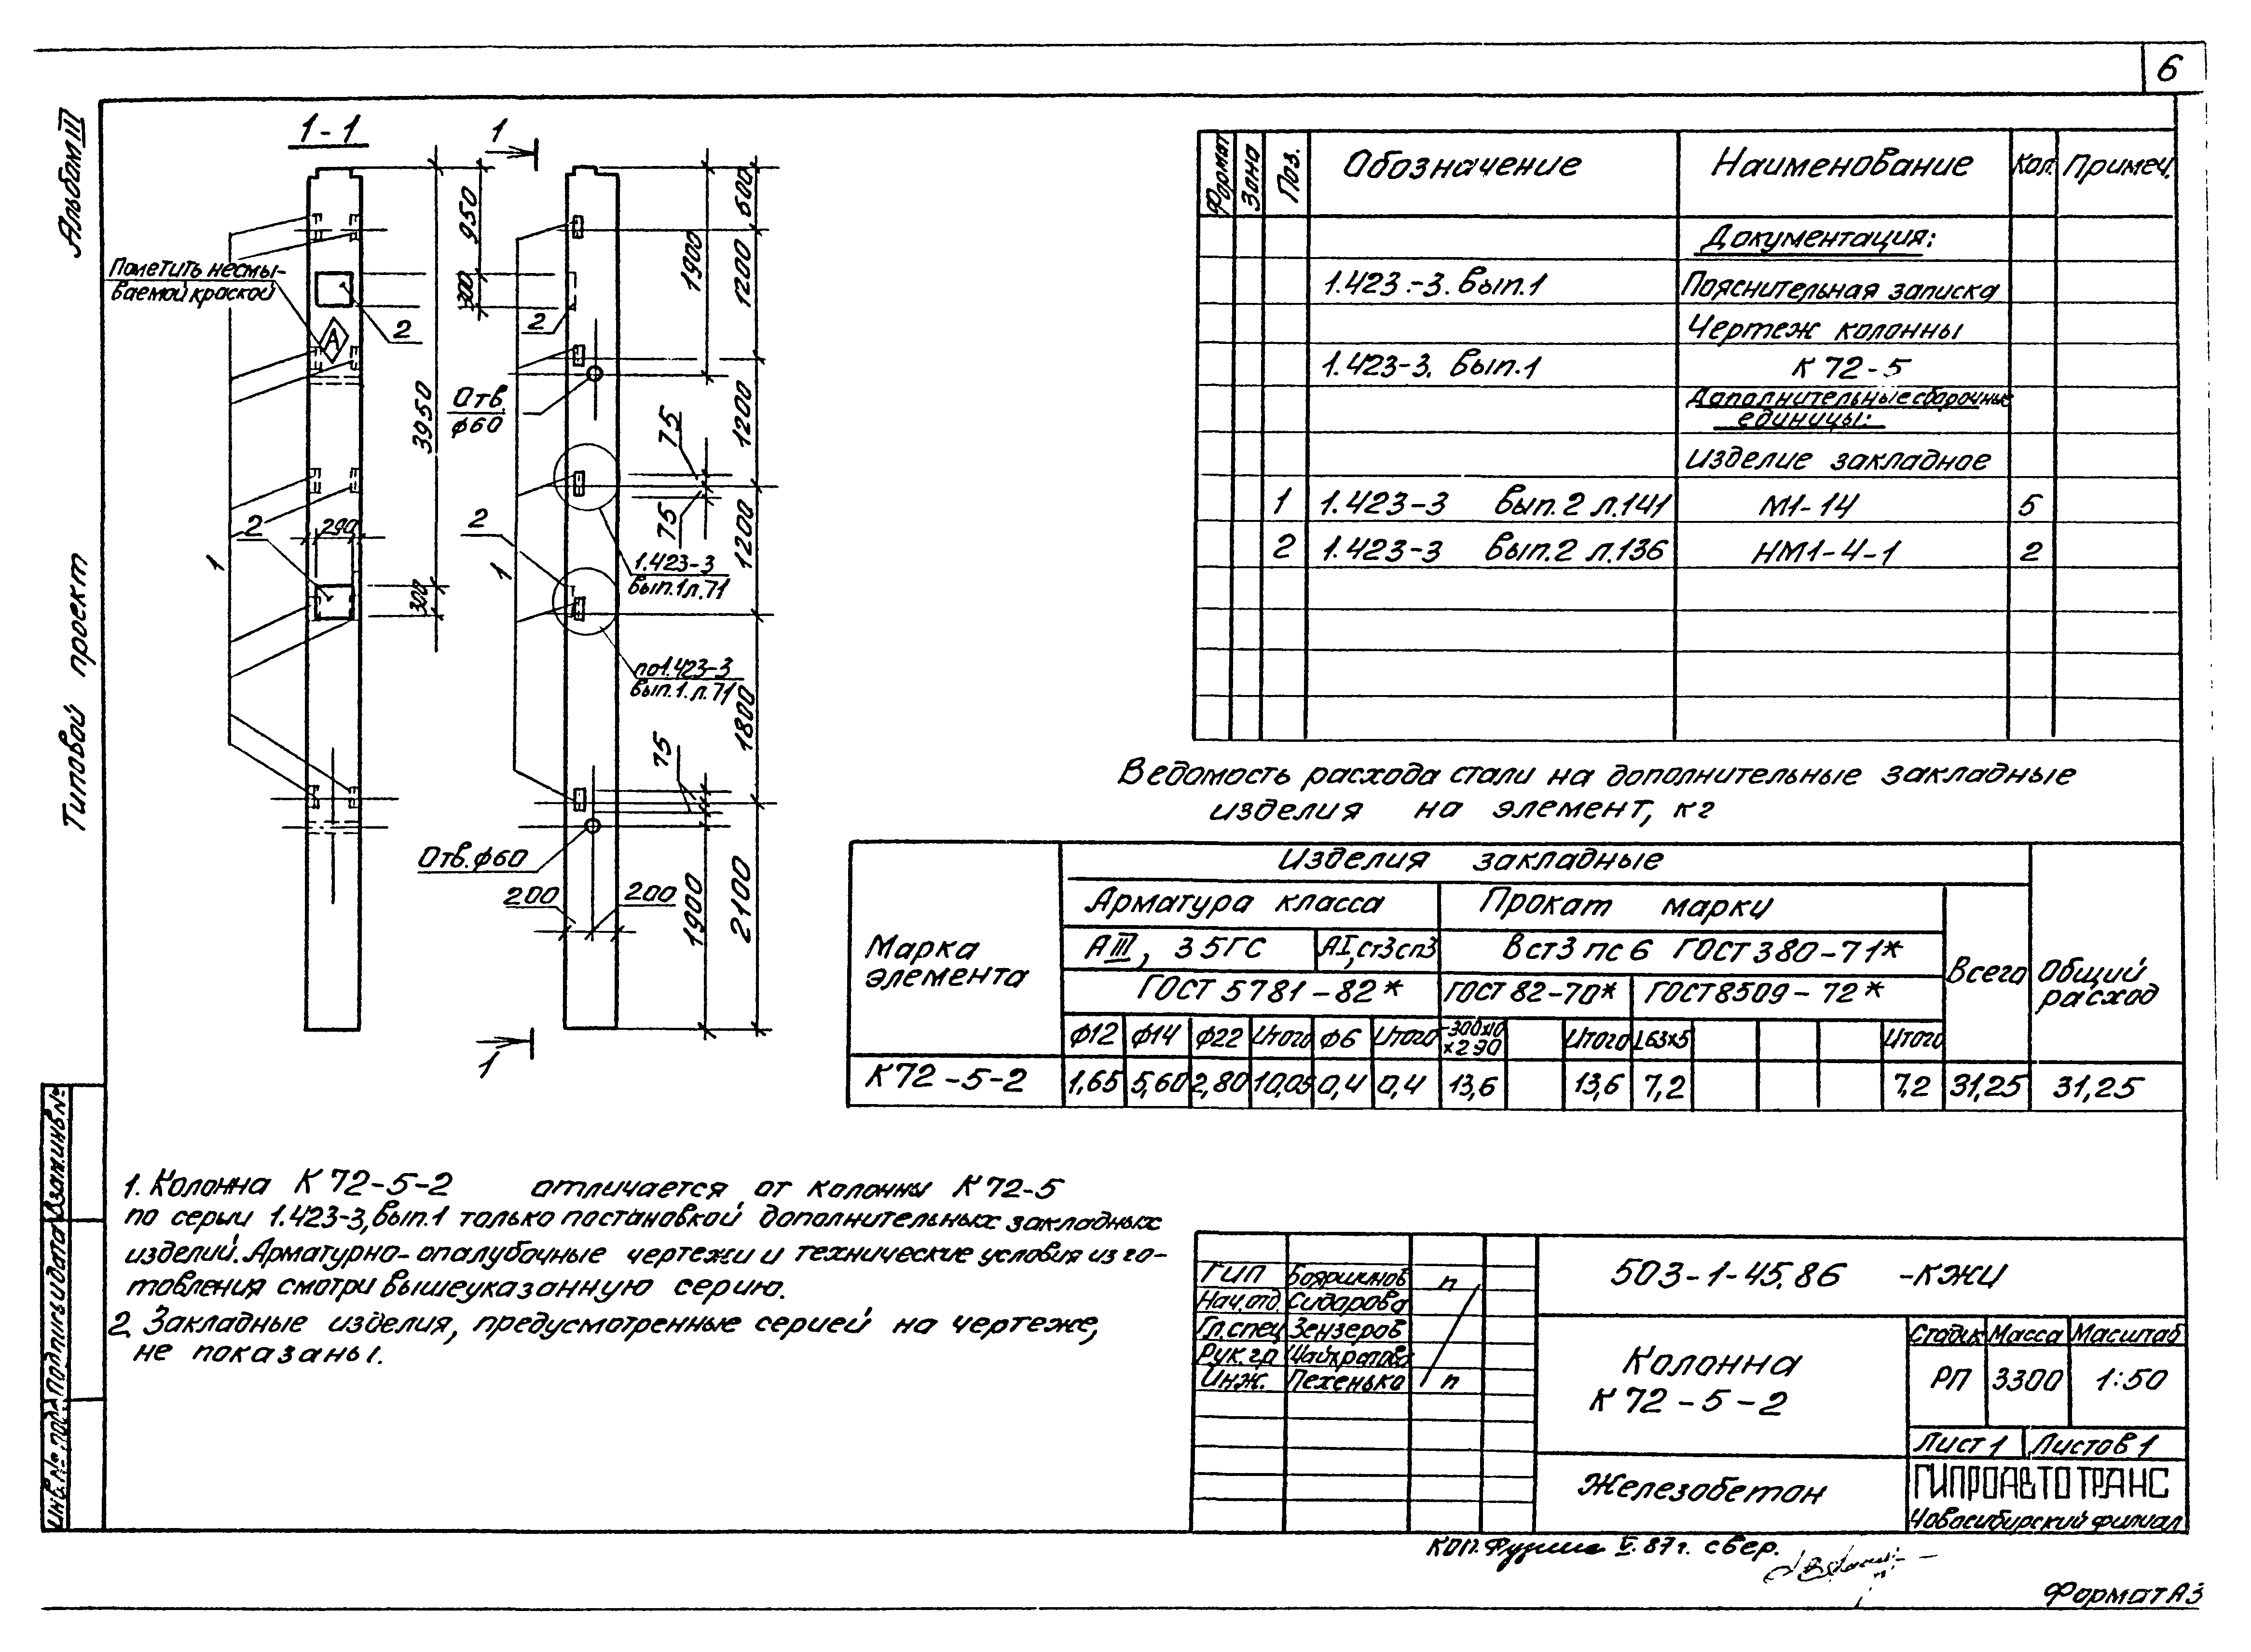 6
Альбом III
Типовой проект
1-1
1
Пометить несмы-
ваемой краской
А
2
1
2
290
3950
300
950
300
2
Отв.
ф60
2
1
Отв. ф60
200
200
75
75
1.423-3
вып.1 л.71
по 1.423-3
вып.1. л.71
75
1900
1900
600
1200
1200
1200
1800
2100
1
Формат
Зона
Поз.
Обозначение
Наименование
Кол.
Примеч.
Документация:
1.423.-3. Вып.1 Пояснительная записка
Чертеж колонны
1.423-3. Вып.1 К 72-5
Дополнительные сборочные
единицы:
Изделие закладное
1 1.423-3 Вып.2 л.141 М1-14 5
2 1.423-3 Вып.2 л.136 НМ1-4-1 2
Ведомость расхода стали на дополнительные закладные
изделия на элемент, кг
Марка
элемента
Изделия закладные
Арматура класса
Прокат марки
АIII, 35ГС
АI, ст3сп3
Вст3 пс 6 ГОСТ 380-71*
ГОСТ 5781-82*
ГОСТ 82-70*
ГОСТ 8509-72*
Всего
Общий
расход
ф12 ф14 ф22 Итого ф6 Итого -300х10 х290 Итого L63х5 Итого
К72-5-2 1,65 5,60 2,80 10,05 0,4 0,4 13,6 13,6 7,2 7,2 31,25 31,25
1. Колонна К 72-5-2 отличается от колонны К 72-5
по серии 1.423-3, вып.1 только постановкой дополнительных закладных
изделий. Арматурно-опалубочные чертежи и технические условия изго-
товления смотри вышеуказанную серию.
2. Закладные изделия, предусмотренные серией на чертеже,
не показаны.
Инв.№ подл. Подпись и дата Взам.инв.№
ГИП Бояршинов
Нач.отд. Сидорова
Гл.спец Зензеров
Рук.гр
Инж. Пехенько
503-1-45.86 -КЖИ
Колонна
К 72-5-2
Стадия Масса Масштаб
РП 3300 1:50
Лист 1 Листов 1
Железобетон
ГИПРОАВТОТРАНС
Новосибирский филиал
Коп. V. 87г. свер.
Формат А3